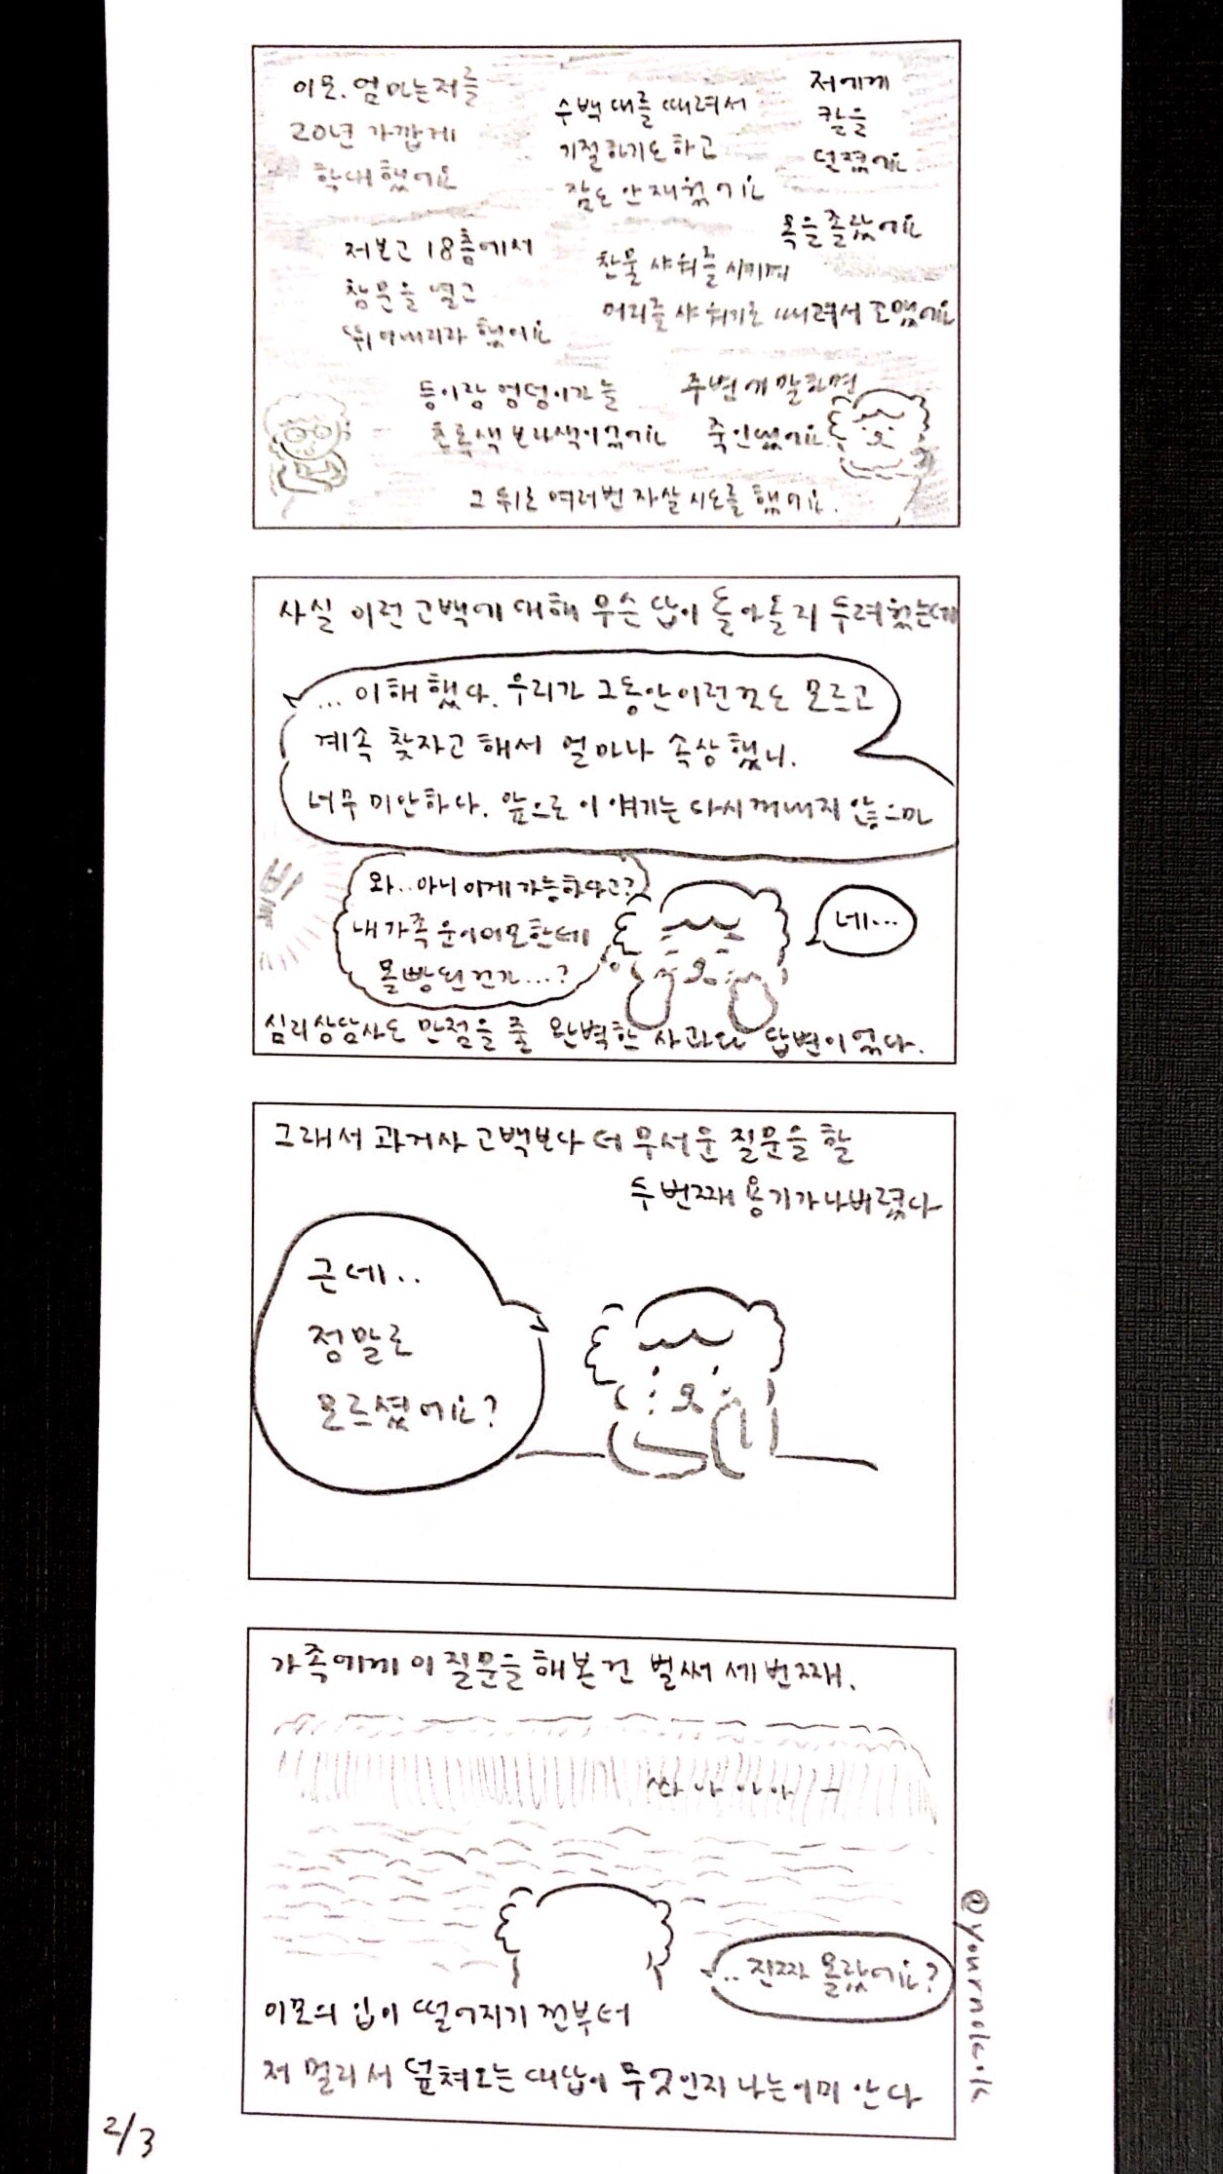 이모. 엄마는 저를
20년 가깝게
학대했어요
수백 대를 때려서
기절하기도 하고
잠도 안 재웠어요
저에게
칼을
던졌어요
목을 졸랐어요
저보고 18층에서
창문을 열고
뛰어내리라 했어요
찬물 샤워를 시키며
머리를 샤워기로 때려서 꼬맸어요
등이랑 엉덩이가 늘
초록색 보라색이었어요
주변에 말하면
죽인댔어요
그 뒤로 여러번 자살 시도를 했어요.
사실 이런 고백에 대해 무슨 답이 돌아올지 두려웠는데
... 이해했다. 우리가 그동안 이런 것도 모르고
계속 찾자고 해서 얼마나 속상했니.
너무 미안하다. 앞으로 이 얘기는 다시 꺼내지 않으마
와.. 아니 이게 가능하다고?
내 가족운 이모한테
몰빵된건가...?
네...
심리상담사도 만점을 줄 완벽한 사과와 답변이었다.
그래서 과거사 고백보다 더 무서운 질문을 할
두번째 용기가 나버렸다
근데..
정말로
모르셨어요?
가족에게 이 질문을 해본 건 벌써 세번째.
쏴아아아
.. 진짜 몰랐어요?
이모의 입이 떨어지기 전부터
저 멀리서 덮쳐오는 대답이 무엇인지 나는 이미 안다
2/3